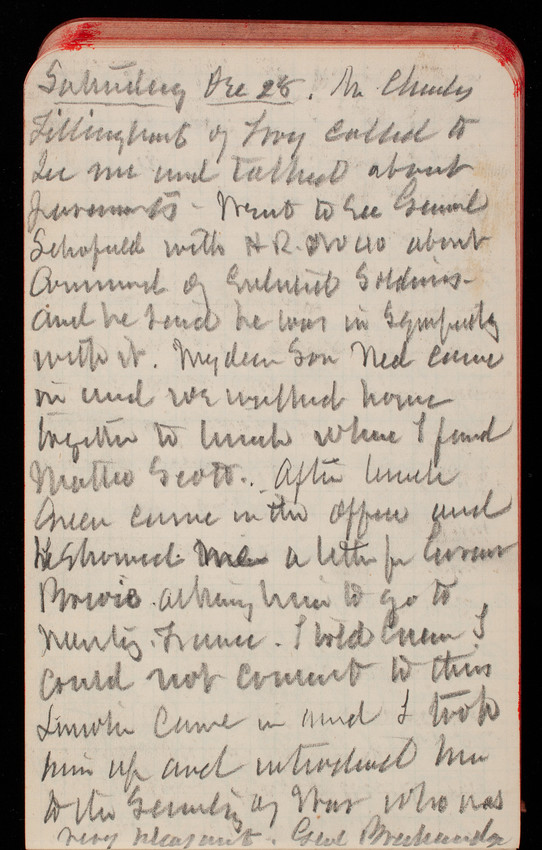 Saturday Dec 28. Mr Charles
Tillinghast of Troy called to
see me and talked about
pavements - Went to see General
Schofield with H.R. about
Command of Enlisted Soldiers -
and he said he was in Sympathy
with it. My dear Son Ned came
in and we walked home
together to lunch where I found
Matteo Scott. After lunch
Green came in the office and
He showed me a letter from
Bowie asking him to go to
Nantes. France. I told Green I
could not consent to this
Lincoln came in and I took
him up and introduced him
to the Secretary of War who was
very pleasant. Genl Breckinridge